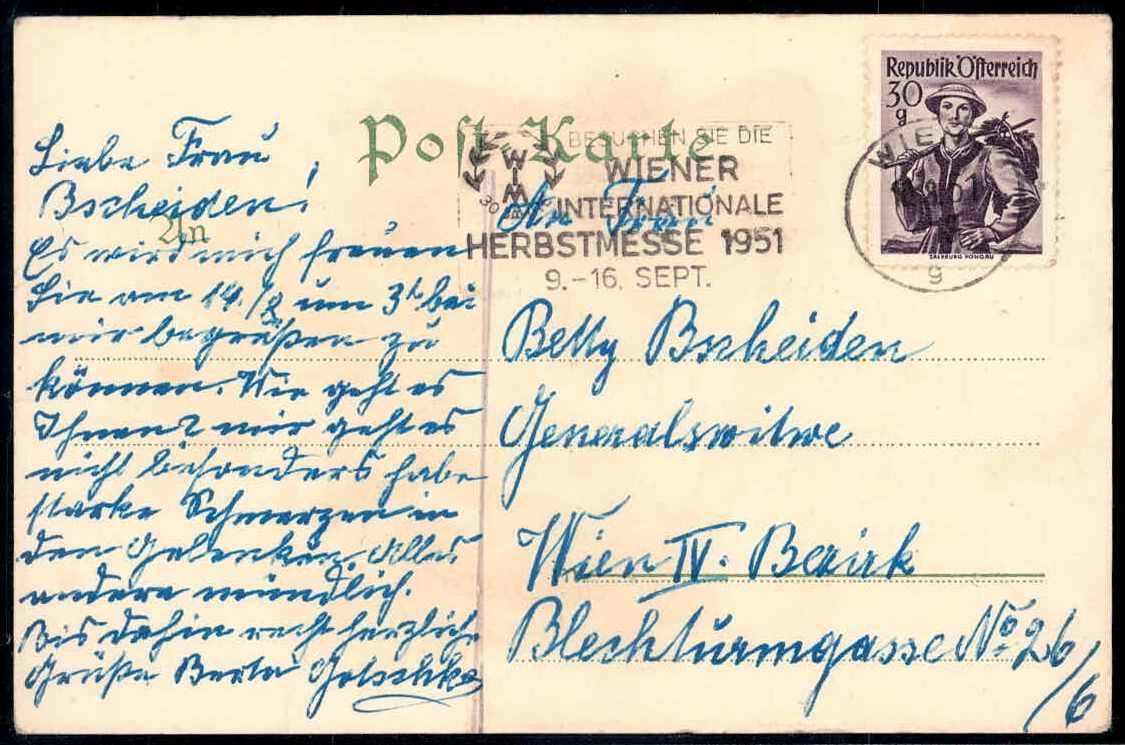 Post-Karte
Liebe Frau
Bscheiden!
An
Es wird mich freuen
Sie am 14./8 um 3h bei
mir begrüßen zu
können. Wie geht es
Ihnen? mir geht es
nicht besonders habe
starke Schmerzen in
den Gelenken. Alles
andere mündlich.
Bis dahin recht herzliche
Grüße Berta
BESUCHEN SIE DIE
WIENER
INTERNATIONALE
HERBSTMESSE 1951
9.-16. SEPT.
WIM
Republik Österreich
30
g
SALZBURG PONGAU
WIEN
9
An Frau
Betty Bscheiden
Generalswitwe
Wien IV. Bezirk
Blechturmgasse No 26/6